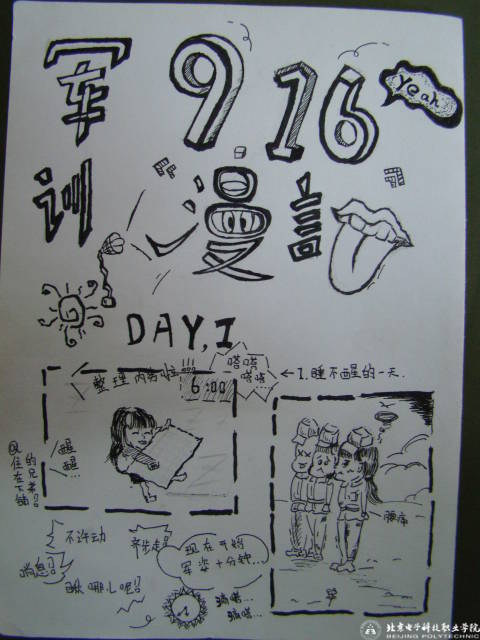 军训 9.16
Yeah
漫言
DAY,1
嗒嗒
嗒嗒
整理内务啦
6:00
←1.睡不醒的一天.
醒
醒...
住在下铺的兄弟
不许动
齐步走
现在开始
军姿十分钟...
稍息
瞅哪儿呢
嘀嗒...
嘀嗒...
腰疼
北京电子科技职业学院
BEIJING POLYTECHNIC